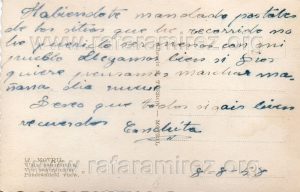 Habiendote mandado postales
de los sitios que he recorrido no
he puesto menos con mi
pueblo llegamos bien si Dios
quiere pensamos marchar ma-
ñana, dia nueve
Deseo que todos sigais bien
recuerdos
Conchita
8-8-58
17 MOTRIL
www.rafaramirez.org